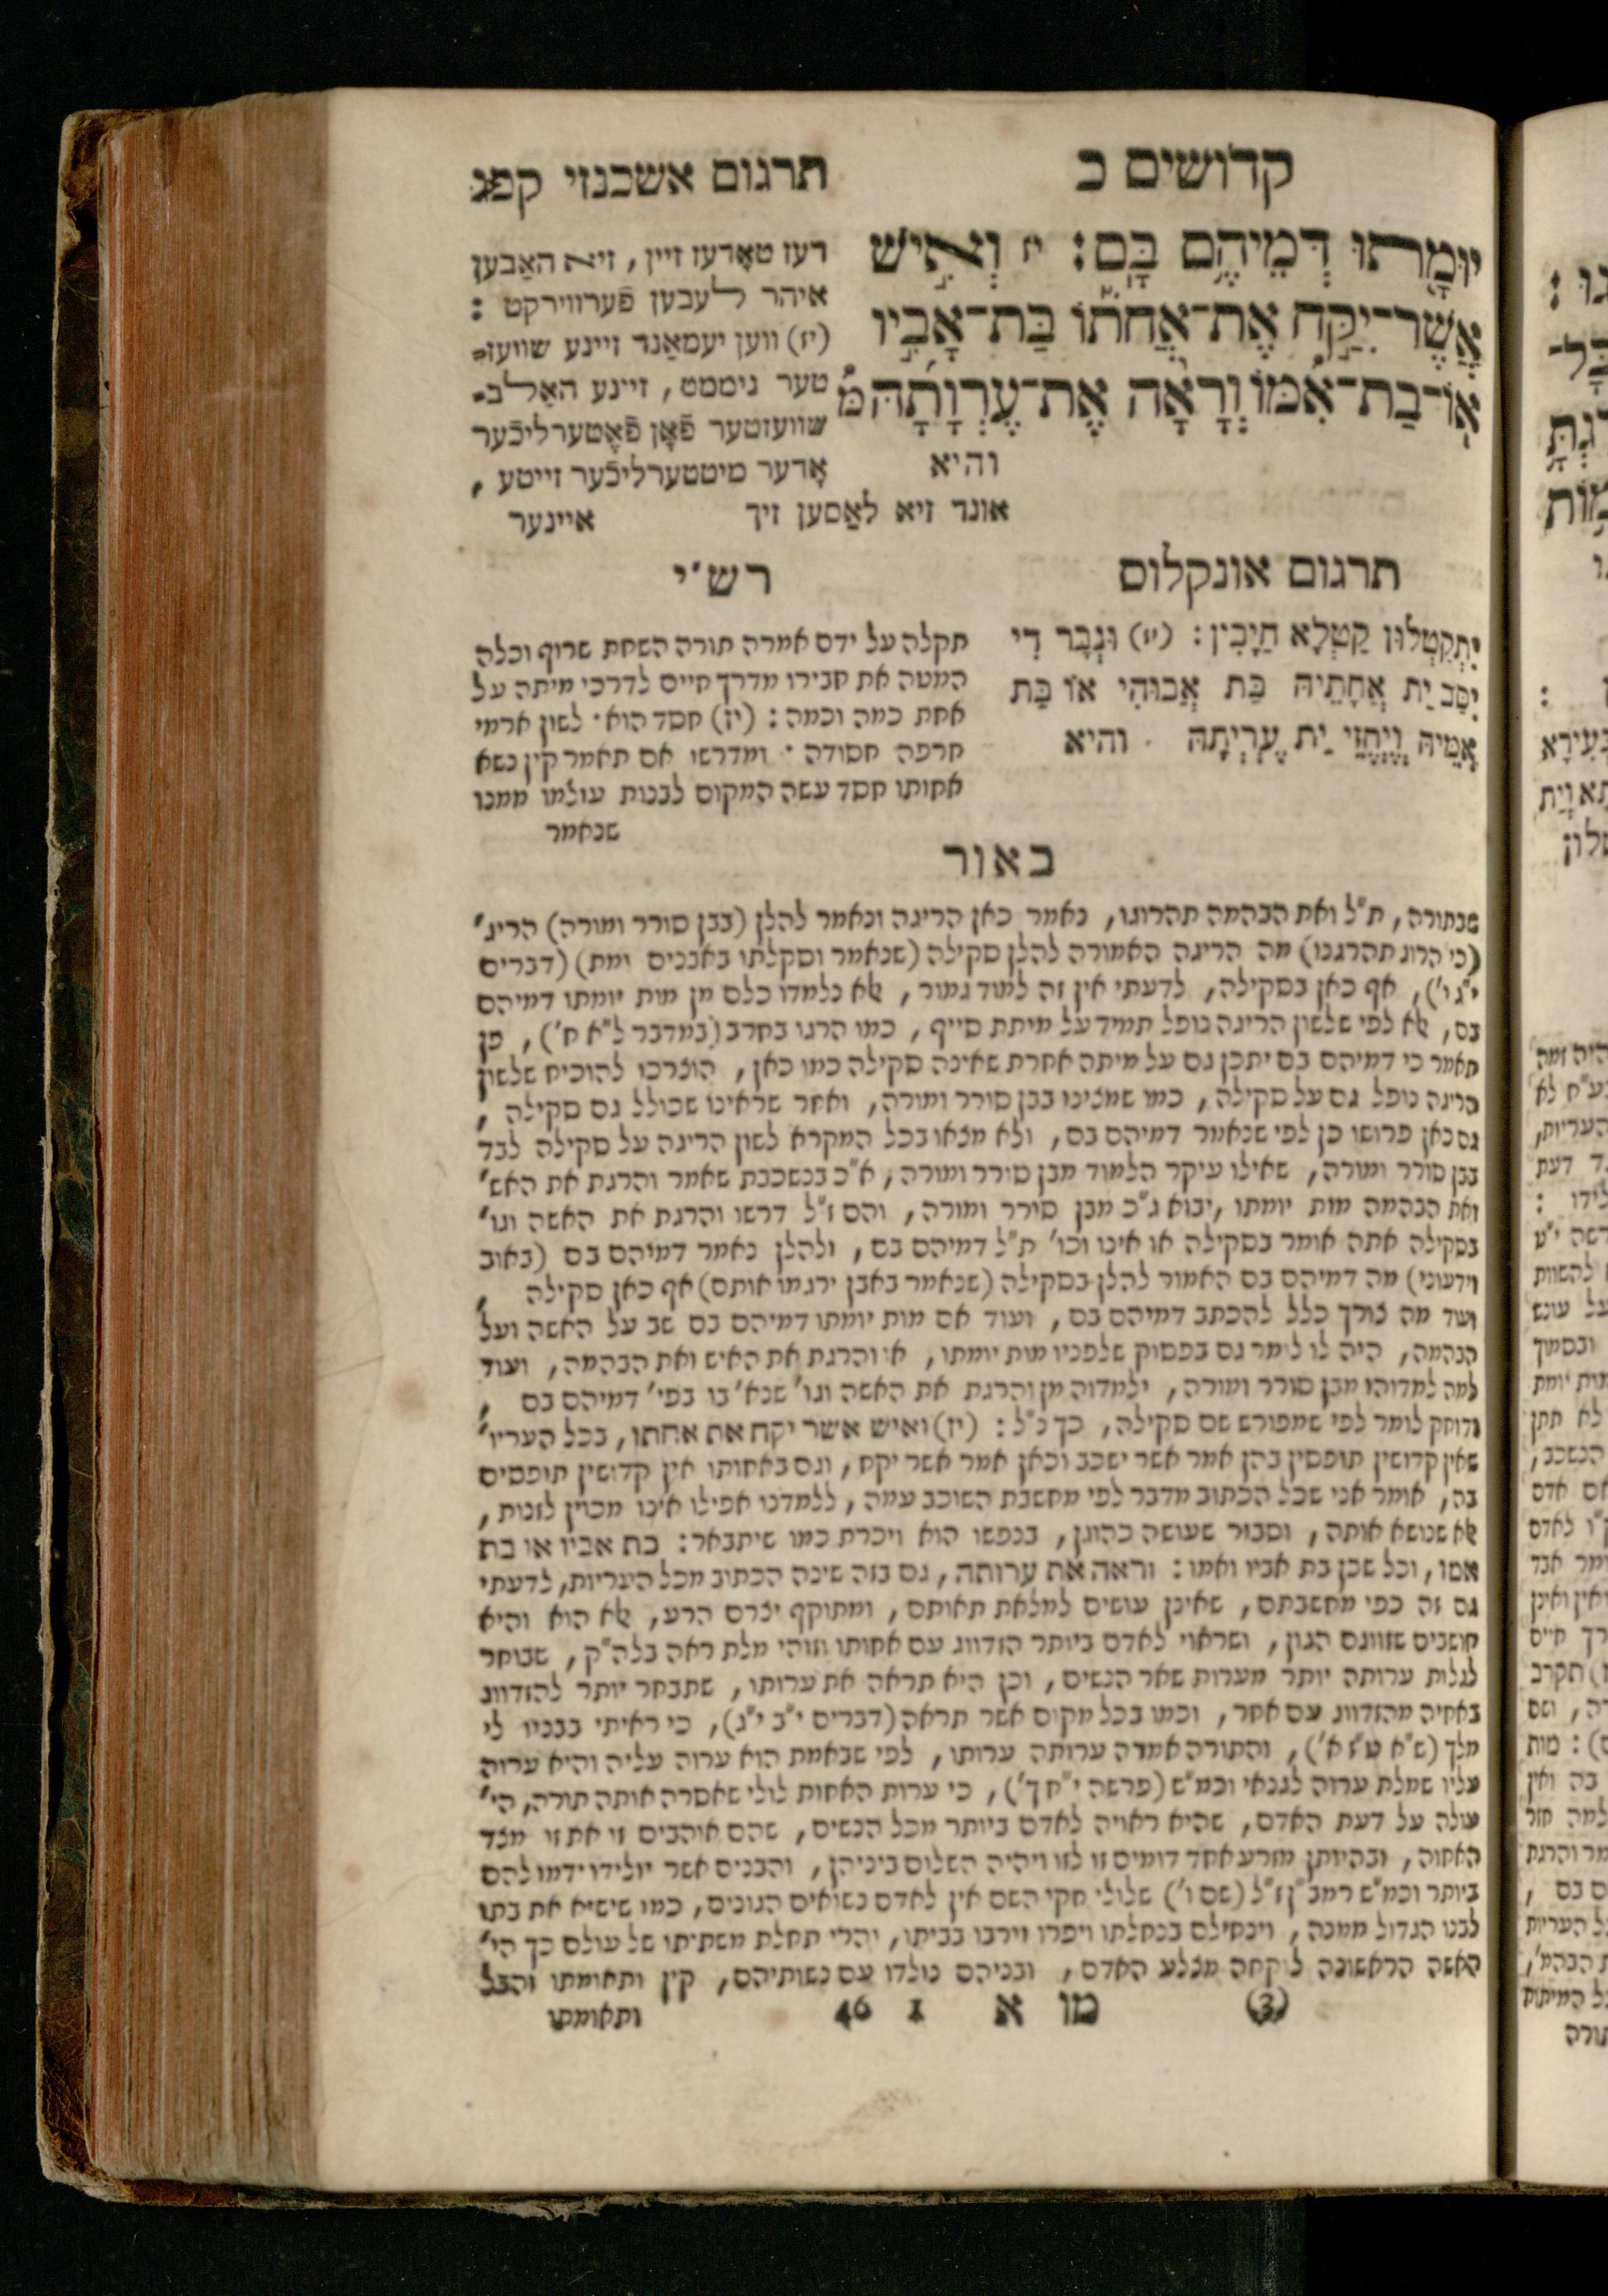 קדושים כ
תרגום אשכנזי קפג
יוּמָ֖תוּ דְּמֵיהֶ֥ם בָּֽם׃ יז וְאִ֣ישׁ
אֲשֶׁר־יִקַּ֣ח אֶת־אֲחֹת֡וֹ בַּת־אָבִ֣יו
א֣וֹ בַת־אִ֠מּוֹ וְרָאָ֨ה אֶת־עֶרְוָתָ֜הּ
והיא
דעז טאָדעז זיין, זיא האַבען
איהר לעבען פֿערווירקט :
(יז) ווען יעמאַנד זיינע שוועז=
טער ניממט, זיינע האַלב=
שוועזטער פֿאָן פֿאָטערליכֿער
אָדער מיטטערליכֿער זייטע,
אונד זיא לאַסען זיך
איינער
תרגום אונקלוס
יִתְקַטְלוּן קַטְלָא חַיָבִין: (יז) וּגְבַר דִי
יִסַב יַת אֲחָתֵיהּ בַּת אֲבוּהִי אוֹ בַּת
אִמֵיהּ וְיֶחֱזֵי יַת עֶרְיְתָהּ והיא
רש"י
תקלה על ידם אמרה תורה השחת שרוף וכלה
המטה את חבירו מדרך חיים לדרכי מיתה על
אחת כמה וכמה: (יז) חסד הוא · לשון ארמי
חרפה חסודה · ומדרשו אם תאמר קין נשא
אחותו חסד עשה המקום לבנות עולמו ממנו
שנאמר
באור
שבתורה, ת"ל ואת הבהמה תהרוגו, נאמר כאן הריגה ונאמר להלן (בבן סורר ומורה) הריג'
(כי הרוג תהרגנו) מה הריגה האמורה להלן סקילה (שנאמר וסקלתו באבנים ומת) (דברים
י"ג י'), אף כאן בסקילה, לדעתי אין זה למוד גמור, אלא נלמדו כלם מן מות יומתו דמיהם
בם, אלא לפי שלשון הריגה נופל תמיד על מיתת סייף, כמו הרגו בחרב (במדבר ל"א ח'), פן
תאמר כי דמיהם בם יתכן גם על מיתה אחרת שאינה סקילה כמו כאן, הוצרכו להוכיח שלשון
הריגה נופל גם על סקילה, כמו שמצינו בבן סורר ומורה, ואחר שראינו שכולל גם סקילה,
גם כאן פרושו כן לפי שנאמר דמיהם בם, ולא מצאו בכל המקרא לשון הריגה על סקילה לבד
בבן סורר ומורה, שאילו עיקר הלמוד מבן סורר ומורה, א"כ בנשכבת שאמר והרגת את האש'
ואת הבהמה מות יומתו, יבוא ג"כ מבן סורר ומורה, והם ז"ל דרשו והרגת את האשה וגו'
בסקילה אתה אומר בסקילה או אינו וכו' ת"ל דמיהם בם, ולהלן נאמר דמיהם בם (באוב
וידעוני) מה דמיהם בם האמור להלן בסקילה (שנאמר באבן ירגמו אותם) אף כאן סקילה,
ועוד מה צורך כלל להכתב דמיהם בם, ועוד אם מות יומתו דמיהם בם שב על האשה ועל
הבהמה, היה לו לומר גם בפסוק שלפניו מות יומתו, או והרגת את האיש ואת הבהמה, ועוד
למה למדוהו מבן סורר ומורה, ילמדוה מן והרגת את האשה וגו' שנא' בו בפי' דמיהם בם,
ודוחק לומר לפי שמפורש שם סקילה, כך נ"ל: (יז) ואיש אשר יקח את אחתו, בכל העריו'
שאין קדושין תופסין בהן אמר אשר ישכב וכאן אמר אשר יקח, וגם באחותו אין קדושין תופסים
בה, אומר אני שכל הכתוב מדבר לפי מחשבת השוכב עמה, ללמדנו אפילו אינו מכוין לזנות,
אלא שנושא אותה, וסבור שעושה כהוגן, בנפשו הוא ויכרת כמו שיתבאר: בת אביו או בת
אמו, וכל שכן בת אביו ואמו: וראה את ערותה, גם בזה שינה הכתוב מכל העריות, לדעתי
גם זה כפי מחשבתם, שאינן עושים למלאת תאותם, ומתוקף יצרם הרע, אלא הוא והיא
חושבים שזווגם הגון, ושראוי לאדם ביותר הזדווג עם אחותו וזוהי מלת ראה בלה"ק, שבוחר
לגלות ערותה יותר מערות שאר הנשים, וכן היא תראה את ערותו, שתבחר יותר להזדווג
באחיה מהזדווג עם אחר, וכמו בכל מקום אשר תראה (דברים י"ב י"ג), כי ראיתי בבניו לי
מלך (ש"א ט"ז א'), והתורה אמרה ערותה ערותו, לפי שבאמת הוא ערוה עליה והיא ערוה
עליו שמלת ערוה לגנאי וכמ"ש (פרשה י"ח ך'), כי ערות האחות לולי שאסרה אותה תורה, הי'
עולה על דעת האדם, שהיא ראויה לאדם ביותר מכל הנשים, שהם אוהבים זו את זו מצד
האחוה, ובהיותן מזרע אחד דומים זו לזו ויהיה השלום ביניהן, והבנים אשר יולידו ידמו להם
ביותר וכמ"ש רמב"ן ז"ל (שם ו') שלולי חקי השם אין לאדם נשואים הגונים, כמו שישיא את בתו
לבנו הגדול ממנה, וינחילם בנחלתו ויפרו וירבו בביתו, והרי תחלת משתיתו של עולם כך הי'
האשה הראשונה לוקחה מצלע האדם, ובניהם נולדו עם נשותיהם, קין ותאומתו והבל
(3) מו א 1 46
ותאומתו